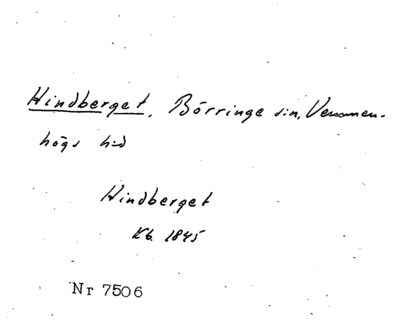 Hindberget, Börringe sn, Vemmen-
högs hd
Hindberget
Kb. 1845
Nr 7506